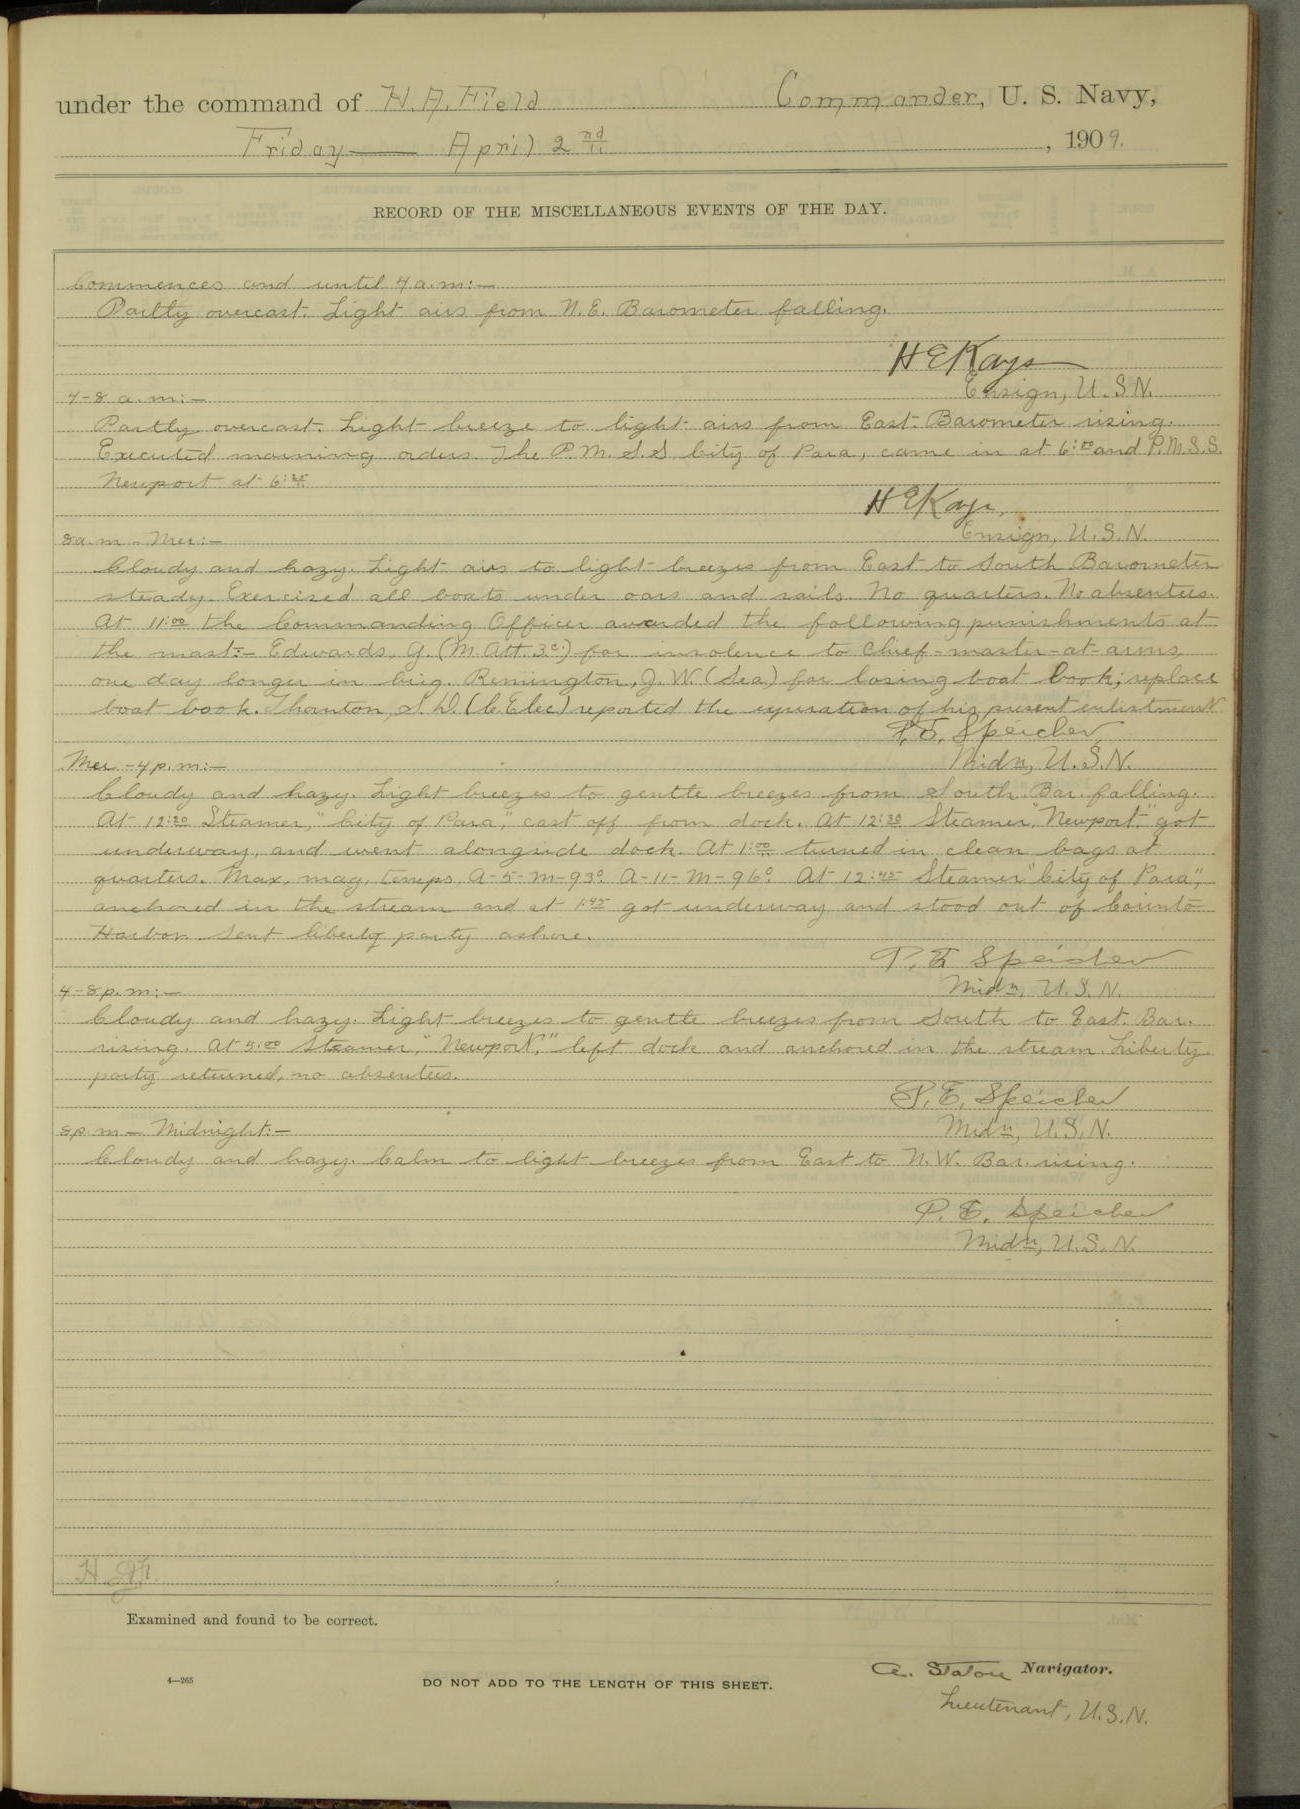 under the command of H. A. Field Commander, U. S. Navy,
Friday — April 2nd, 1909.
RECORD OF THE MISCELLANEOUS EVENTS OF THE DAY.
Commences and until 4 a.m:—
Partly overcast. Light airs from N.E. Barometer falling.
H E Kays
Ensign, U.S.N.
4-8 a.m:—
Partly overcast. Light breeze to light airs from East. Barometer rising.
Executed morning orders. The P.M.S.S. City of Para, came in at 6:00 and P.M.S.S.
Newport at 6:
H E Kays,
Ensign, U.S.N.
8 a.m - Mer:—
Cloudy and hazy. Light airs to light breezes from East to South Barometer
steady. Exercised all boats under oars and sails. No quarters. No absentees.
At 11:00 the Commanding Officer awarded the following punishments at
the mast:— Edwards, G. (M. Att. 3c) for insolence to Chief-master-at-arms,
one day longer in brig. Remington, J. W. (Sea) for losing boat book; replace
boat book. Thonton, S. D. (C. Elec) reported the expiration of his present enlistment.
P. E. Speicher,
Midn, U.S.N.
Mer - 4 p.m:—
Cloudy and hazy. Light breezes to gentle breezes from South. Bar. falling.
At 12:20 Steamer, "City of Para," cast off from dock. At 12:30 Steamer, "Newport," got
underway, and went alongside dock. At 1:00 turned in clean bags at
quarters. Max. mag. temps. A-5-M-93° A-11-M-96° At 12:45 Steamer "City of Para",
anchored in the stream and at 1:45 got underway and stood out of Corinto
Harbor. Sent liberty party ashore.
P. E. Speicher
Midn, U.S.N.
4-8 p.m:—
Cloudy and hazy. Light breezes to gentle breezes from South to East. Bar.
rising. At 5:00 Steamer, "Newport," left dock and anchored in the stream. Liberty
party returned, no absentees.
P. E. Speicher
Midn, U.S.N.
8 p.m — Midnight:—
Cloudy and hazy. Calm to light breezes from East to N.W. Bar. rising.
P. E. Speicher
Midn, U.S.N.
Examined and found to be correct.
A. Staton Navigator.
4—265
DO NOT ADD TO THE LENGTH OF THIS SHEET.
Lieutenant, U.S.N.